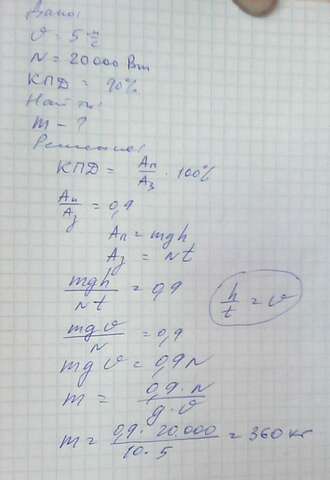 Дано:
υ = 5 м/с
N = 20000 Вт
КПД = 90%
Найти:
m - ?
Решение:
КПД = Aп/Aз · 100%
Aп/Aз = 0,9
Aп = mgh
Aз = Nt
mgh/Nt = 0,9
h/t = υ
mgυ/N = 0,9
mgυ = 0,9N
m = 0,9·N/g·υ
m = 0,9·20.000/10·5 = 360 кг